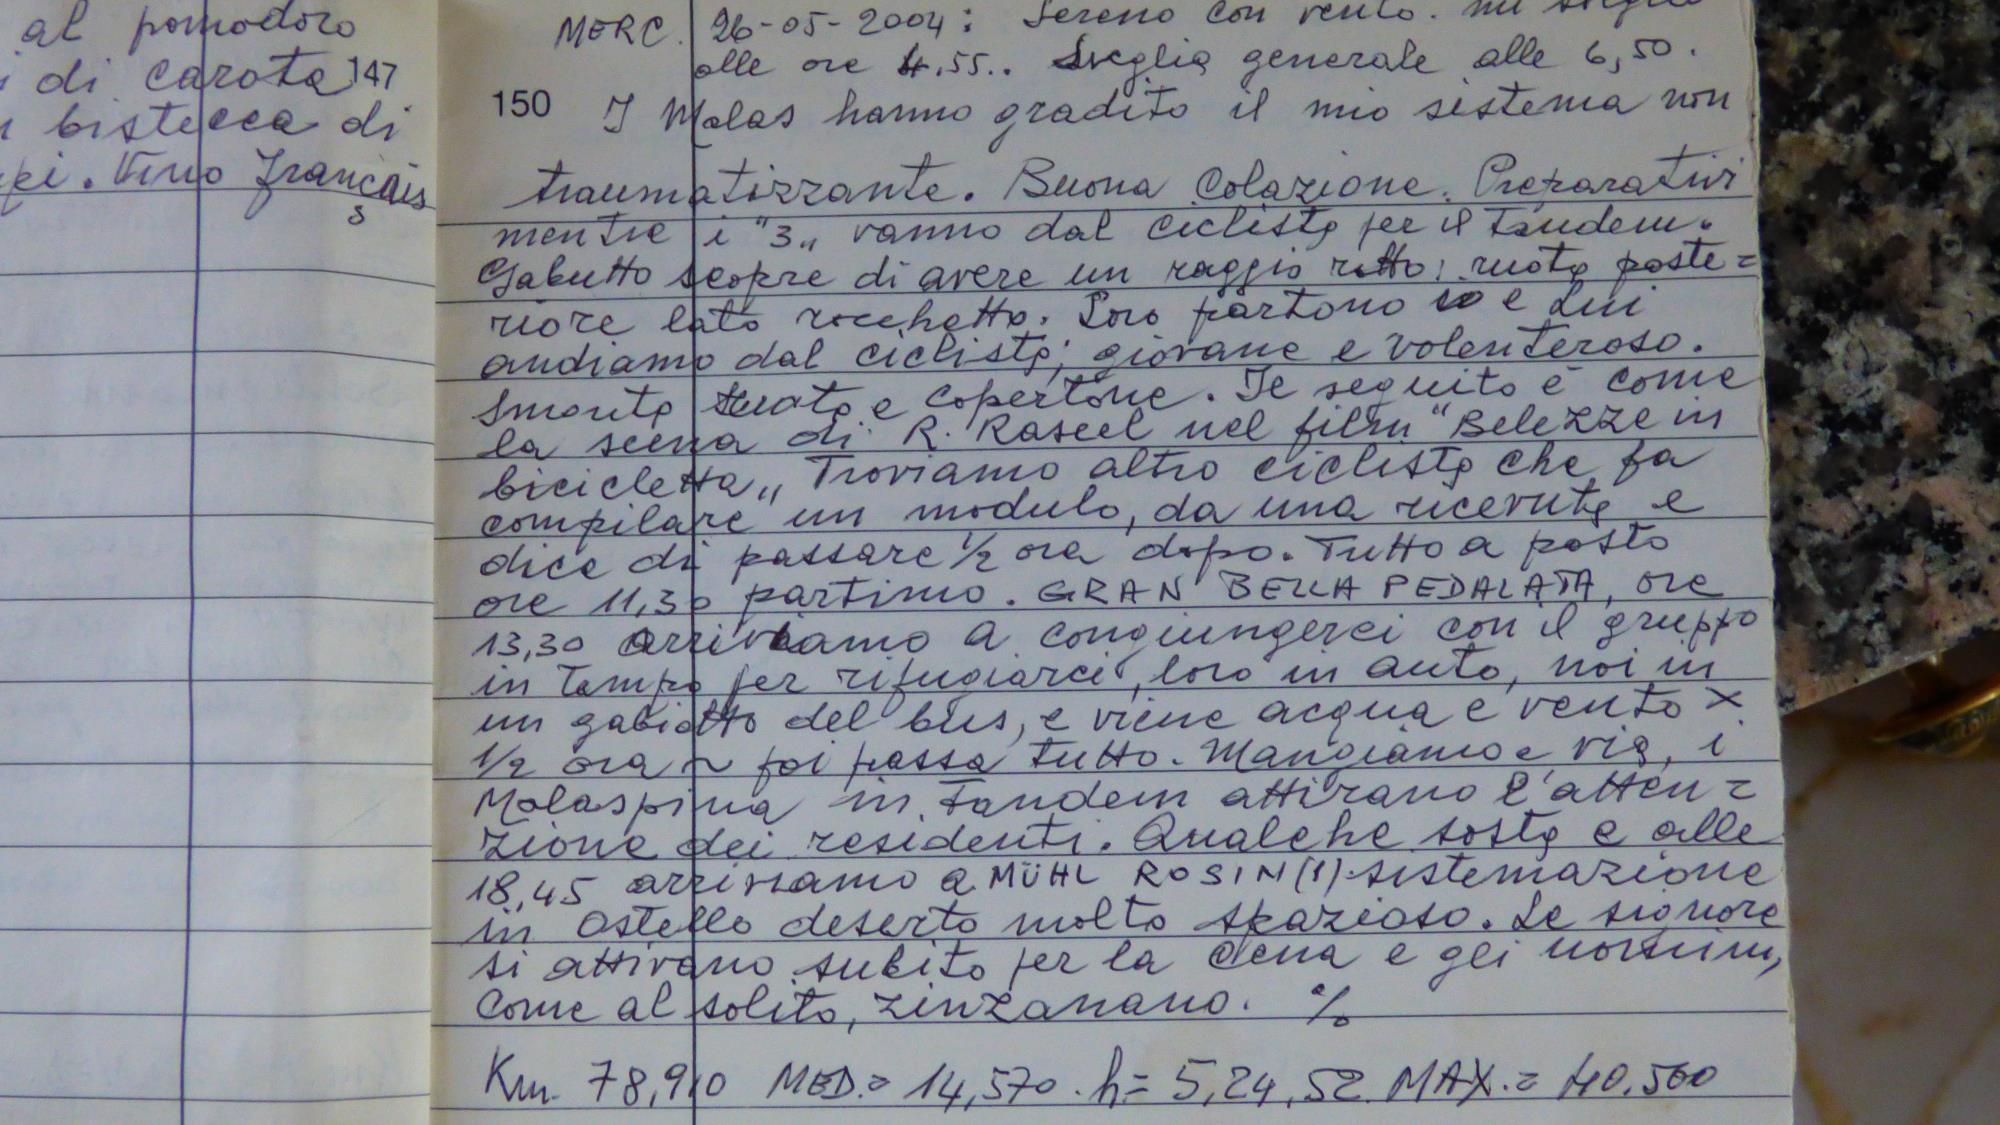 al pomodoro
di carota 147
bistecca di
Vino Français
s
MERC. 26-05-2004: Sereno con vento. mi sveglio
alle ore 4.55.. Sveglia generale alle 6,50.
150 I Malas hanno gradito il mio sistema non
traumatizzante. Buona Colazione. Preparativi
mentre i "3" vanno dal ciclista per il Tandem.
Gabutto scopre di avere un raggio rotto: ruota poste=
riore lato rocchetto. Loro partono io e Lui
andiamo dal ciclista; giovane e volenteroso.
Smonta ruota e copertone. Il seguito è come
la scena di R. Rascel nel film "Belezze in
bicicletta" Troviamo altro ciclista che fa
compilare un modulo, da una ricevuta e
dice di passare 1/2 ora dopo. Tutto a posto
ore 11,30 partimo. GRAN BELLA PEDALATA, ore
13,30 arriviamo a congiungerci con il gruppo
in tempo per rifugiarci, loro in auto, noi in
un gabiotto del bus, e viene acqua e vento x
1/2 ora ~ poi passa tutto. Mangiamo e via, i
Malaspina in Tandem attirano l'atten=
zione dei residenti. Qualche sosta e alle
18,45 arriviamo a MÜHL ROSIN (!) sistemazione
in Ostello deserto molto spazioso. Le signore
si attivano subito per la cena e gli uomini,
come al solito, zinzanano. %
Km. 78,910 MED.= 14,570. h= 5,24,52 MAX.= 40.500